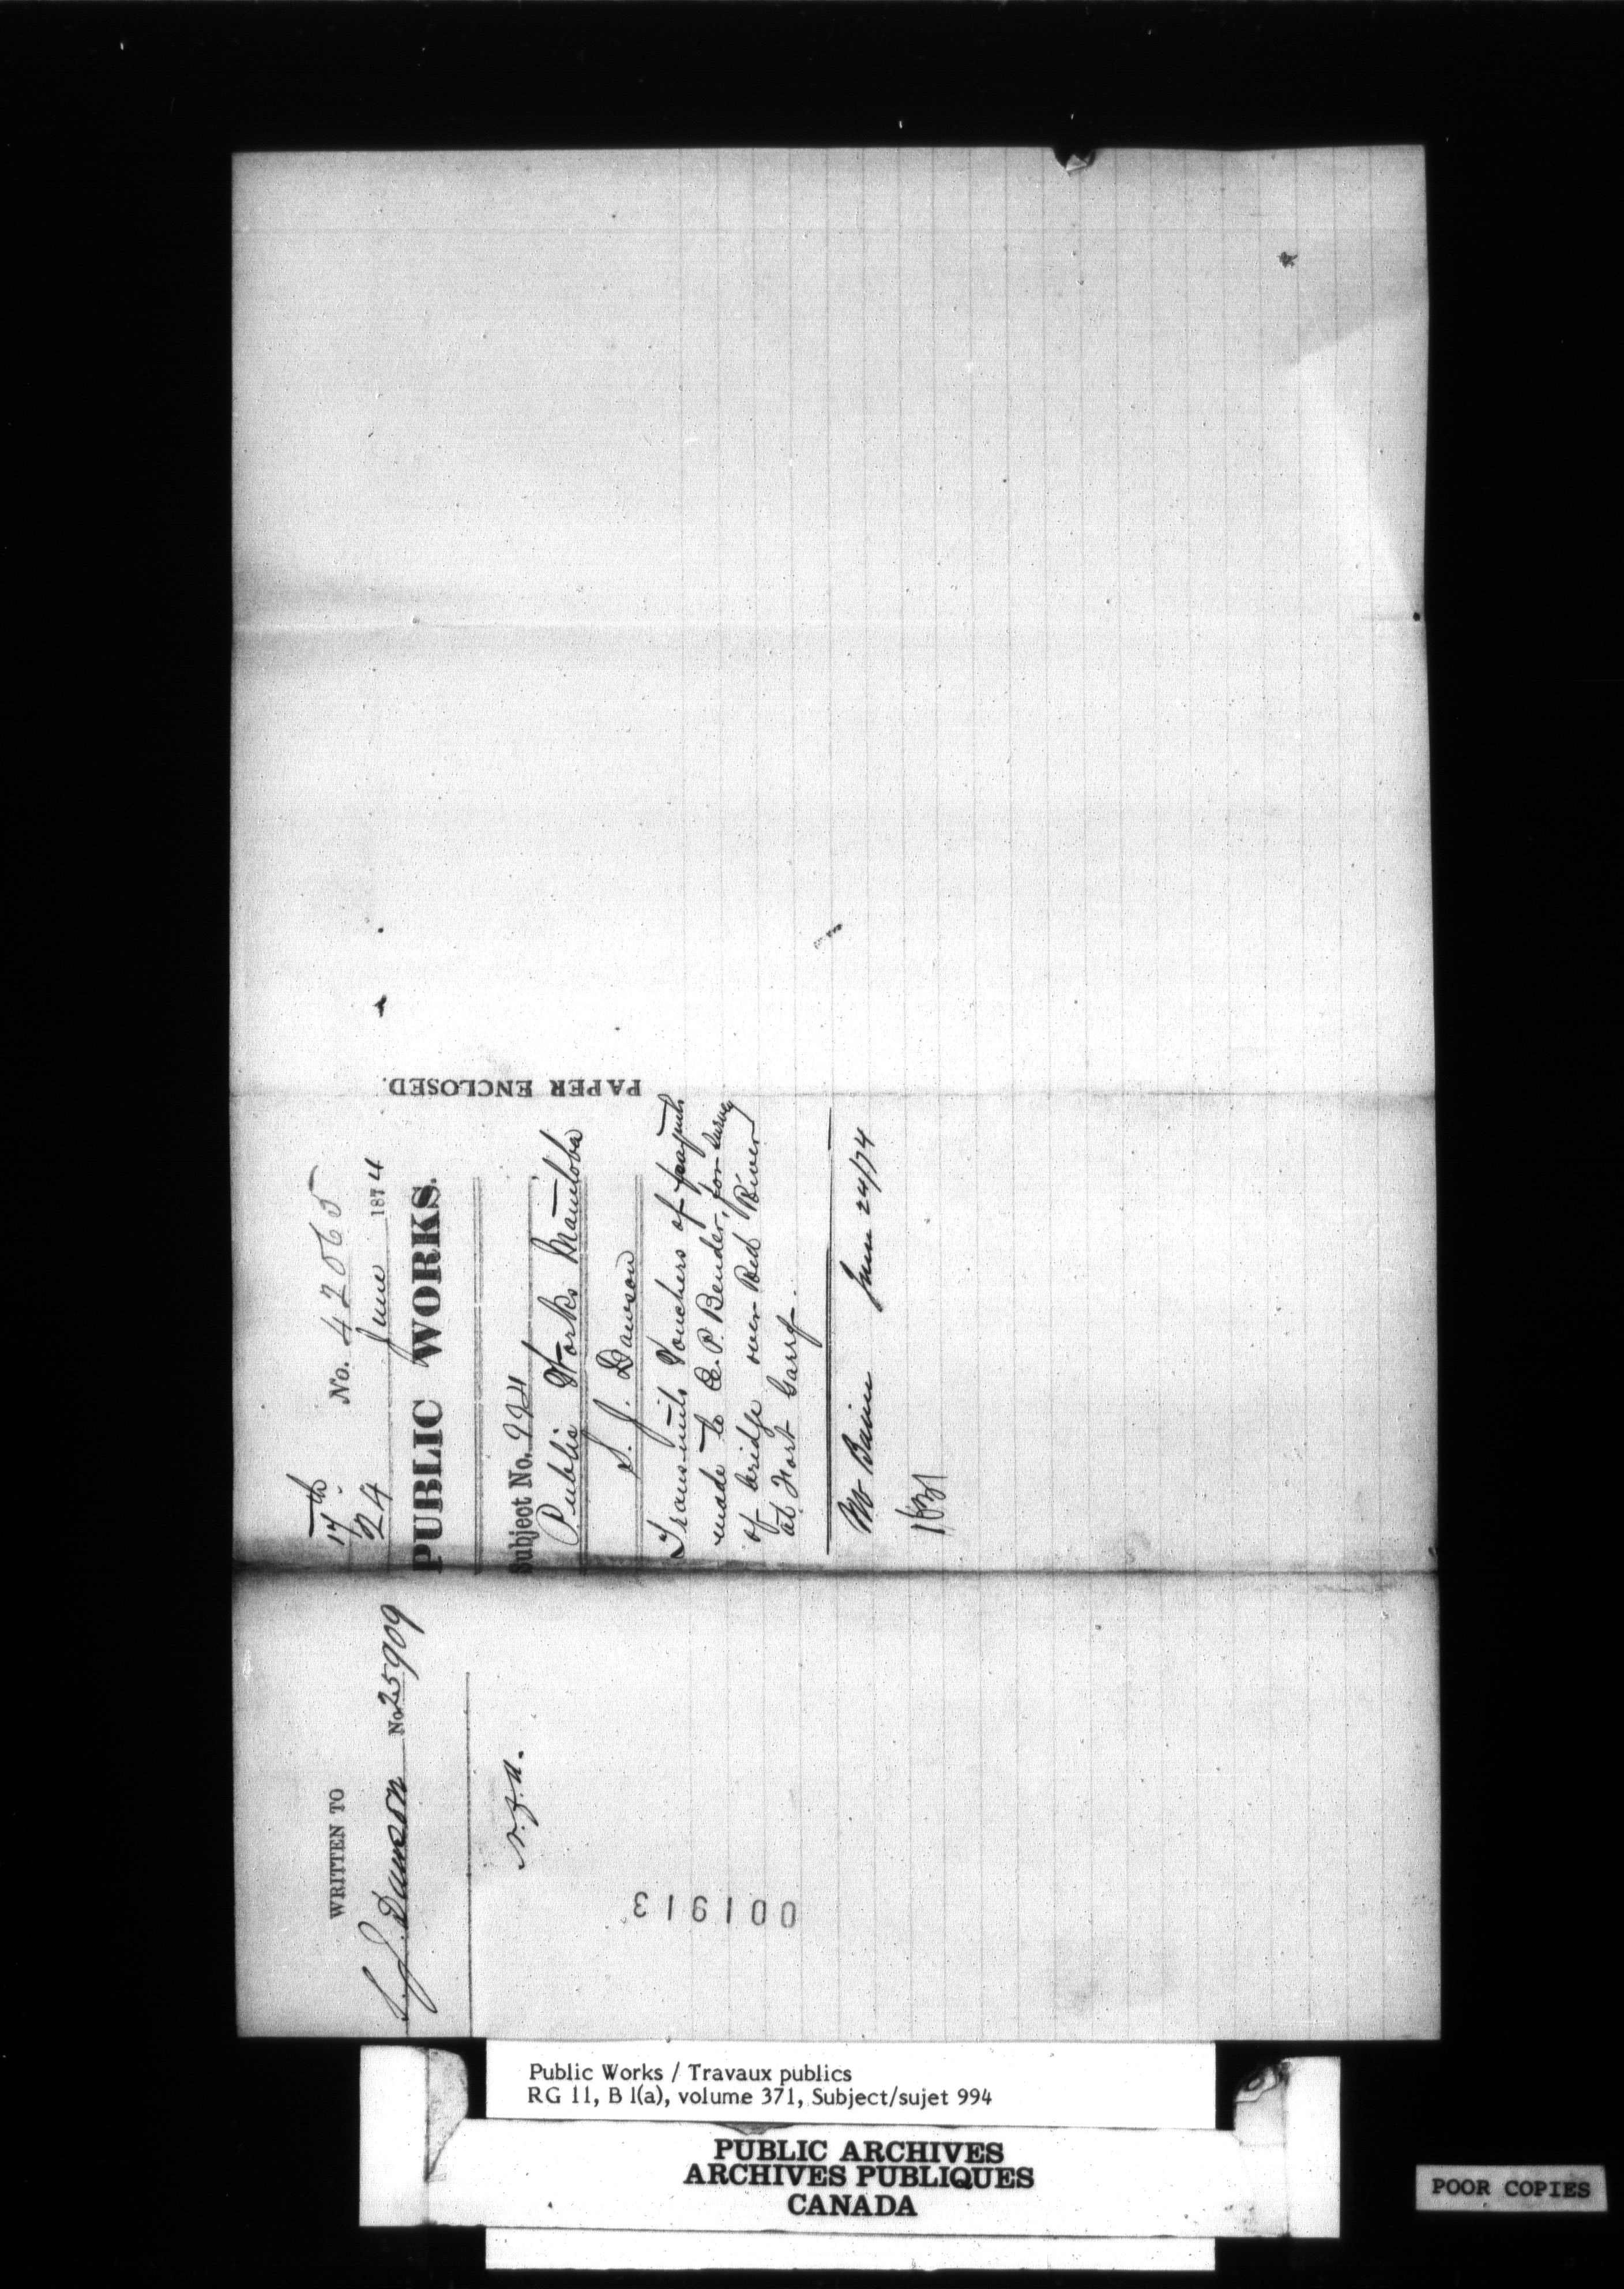 17th
No. 42065
24 June 1874
PUBLIC WORKS.
Subject No. 994
Public Works Manitoba
S. J. Dawson
Transmits Vouchers of paymts
made to E. P. Bender, for survey
of bridge over Red River
at Fort Garry.
June 24/74
PAPER ENCLOSED.
WRITTEN TO
S. J. Dawson No. 25909
001913
Public Works / Travaux publics
RG 11, B 1(a), volume 371, Subject/sujet 994
PUBLIC ARCHIVES
ARCHIVES PUBLIQUES
CANADA
POOR COPIES